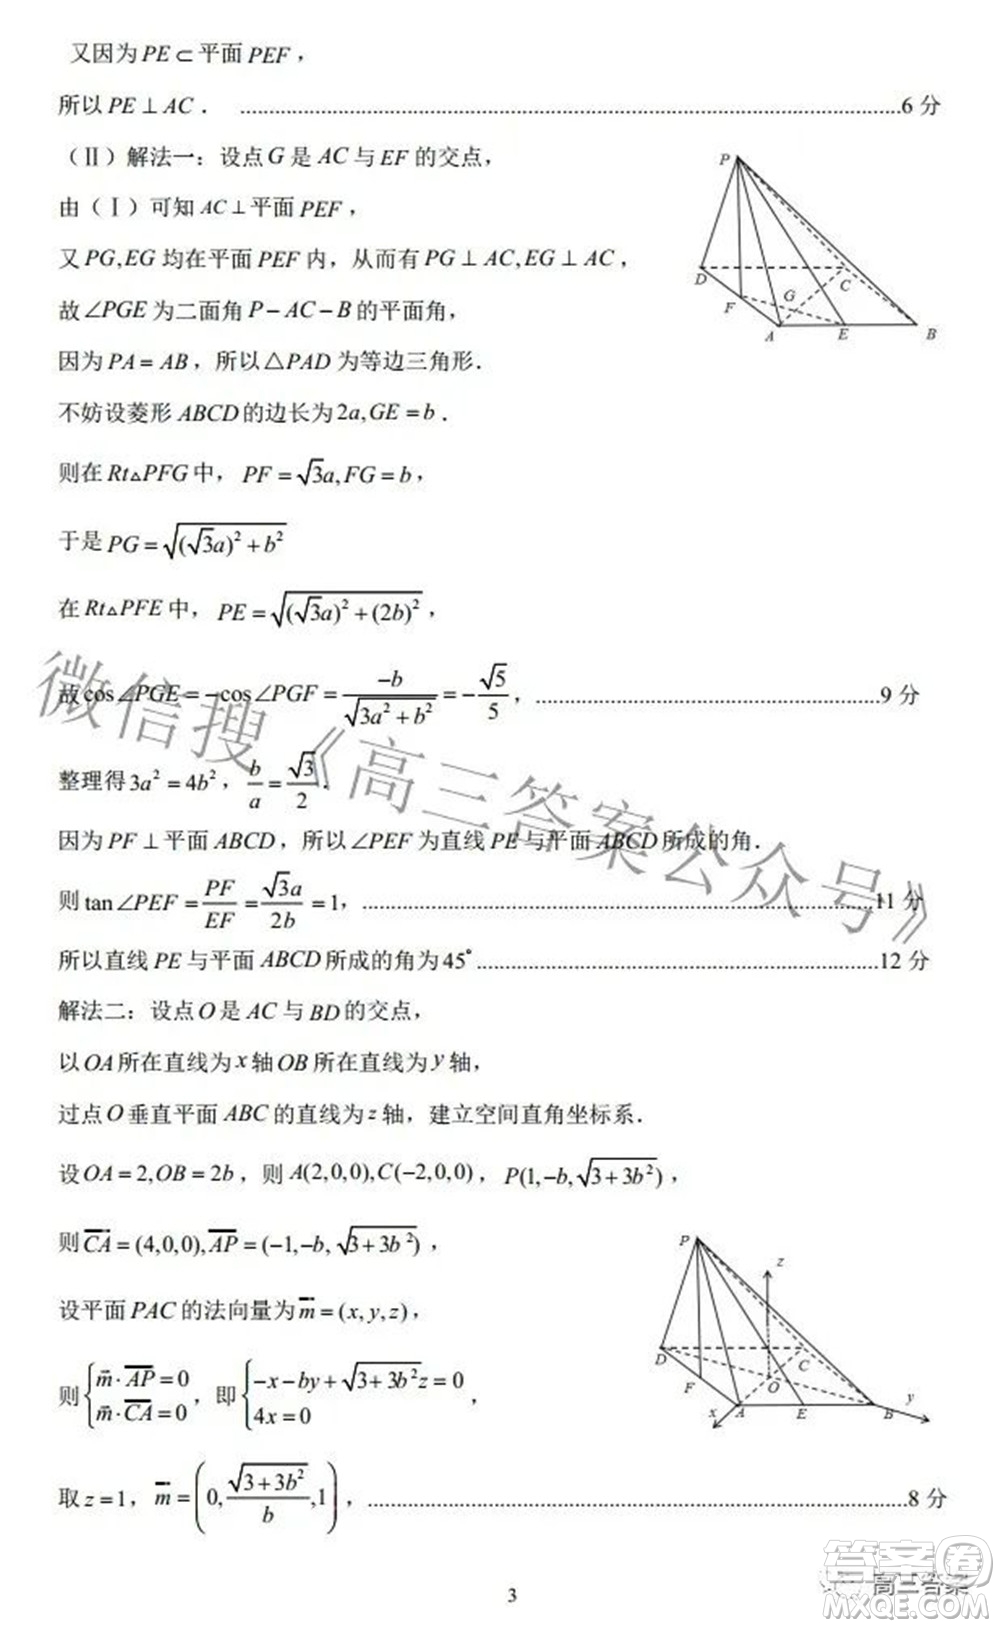 又因为 PE ⊂ 平面 PEF，
所以 PE ⊥ AC． ........................6 分
（Ⅱ）解法一：设点 G 是 AC 与 EF 的交点，
由（Ⅰ）可知 AC ⊥ 平面 PEF，
又 PG, EG 均在平面 PEF 内，从而有 PG ⊥ AC, EG ⊥ AC，
故 ∠PGE 为二面角 P − AC − B 的平面角，
因为 PA = AB，所以 △PAD 为等边三角形．
不妨设菱形 ABCD 的边长为 2a, GE = b．
则在 Rt△PFG 中，PF = √3a, FG = b，
于是 PG = √((√3a)² + b²)
在 Rt△PFE 中，PE = √((√3a)² + (2b)²)，
故 cos∠PGE = −cos∠PGF = −b/√(3a² + b²) = −√5/5，........................9 分
整理得 3a² = 4b²，b/a = √3/2．
因为 PF ⊥ 平面 ABCD，所以 ∠PEF 为直线 PE 与平面 ABCD 所成的角．
则 tan∠PEF = PF/EF = √3a/2b = 1，........................11 分
所以直线 PE 与平面 ABCD 所成的角为 45° ........................12 分
解法二：设点 O 是 AC 与 BD 的交点，
以 OA 所在直线为 x 轴 OB 所在直线为 y 轴，
过点 O 垂直平面 ABC 的直线为 z 轴，建立空间直角坐标系．
设 OA = 2, OB = 2b，则 A(2,0,0), C(−2,0,0)，P(1,−b,√(3+3b²))，
则 CA = (4,0,0), AP = (−1,−b,√(3+3b²))，
设平面 PAC 的法向量为 m = (x, y, z)，
则 { m · AP = 0，即 { −x − by + √(3+3b²)z = 0
m · CA = 0 4x = 0 ，
取 z = 1，m = (0, √(3+3b²)/b, 1)，........................8 分
3
P
D
C
G
F
A
E
B
P
z
D
C
F
O
x
A
E
B
y
微信搜《高三答案公众号》
答案圈
高三答案
MXQE.COM